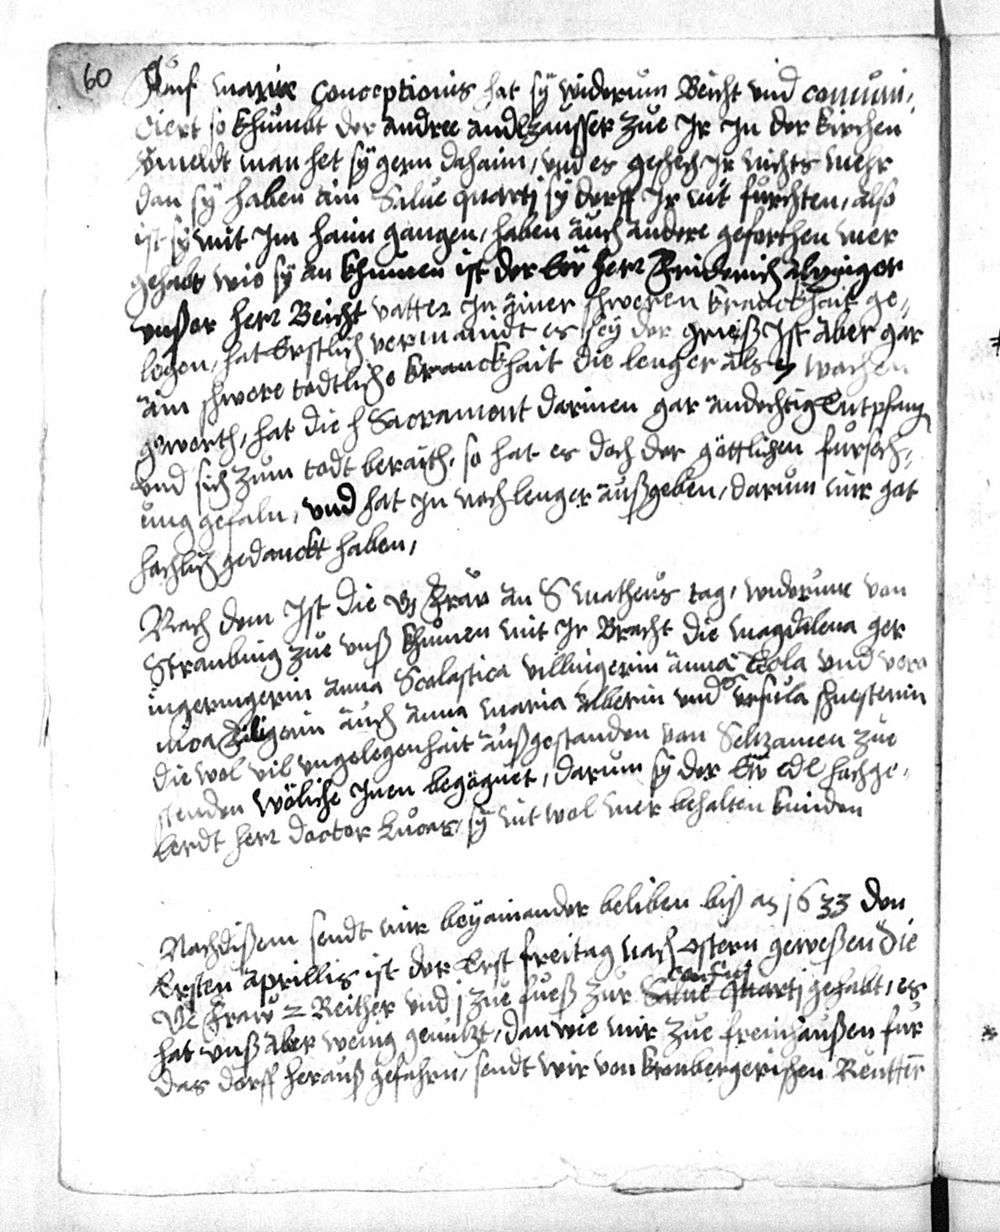 60
Auf maria Conceptionis hat sÿ widerumb Beicht vnd comuni,
ciert so khumbt der andree andlzausser zue Jr Jn der kirchen
vermeldt man het sÿ gern dahaim, vnd es gschech Jr nichts mehr
dan sÿ haben ain Salue quarti sÿ derff Jr nit fürchten, also
ist sÿ mit Jm haim gangen, haben auch andere geforthen mer
gehabt wie sÿ an khumen ist der Er herr Friderich
vnser herr Beicht vatter Jn ainer schweren kranckhait ge,
legen, hat Erstlich vermaindt es seÿ der grieß Jst aber gar
ain schwere todtliche kranckhait die lenger als 7 wochen
gewerth, hat die h Sacrament darinen gar andechtig Entpfang
vnd sich zum todt beraith, so hat es doch der göttlichen fürsech,
ung gefaln, vnd hat Jn noch lenger außgeben, darum wir got
hochlich gedanckt haben,
Nach dem Jst die Frau an S Matheus tag, widerumb von
Straubing zue vnß khumen mit Jr Bracht die Magdalena ger
ingeringerin anna Scolastica villingerin anna Tecla vnd vero
nica auch anna maria alberin vnd vrsula schuesterin
die wol vil vngelegenhait außgestanden von Seltzamen zue
stenden wöliche Jnen begögnet, darum sÿ der Er edl hochge,
lerdt herr doctor Lucas, sÿ nit wol mer behalten kinden
Nachdisem sendt wir beÿainander beliben biß ao 1633 den
Ersten aprillis ist der Erst freitag nach ostern geweßen die
Frau 2 Reither vnd j zue fueß zur Salue quarti gehabt, es
confus
hat vnß aber wenig genutzt, dan wie wir zue freinhaußen für
das dorff herauß gefahrn, sendt wir von kronbergerischen Reuttern